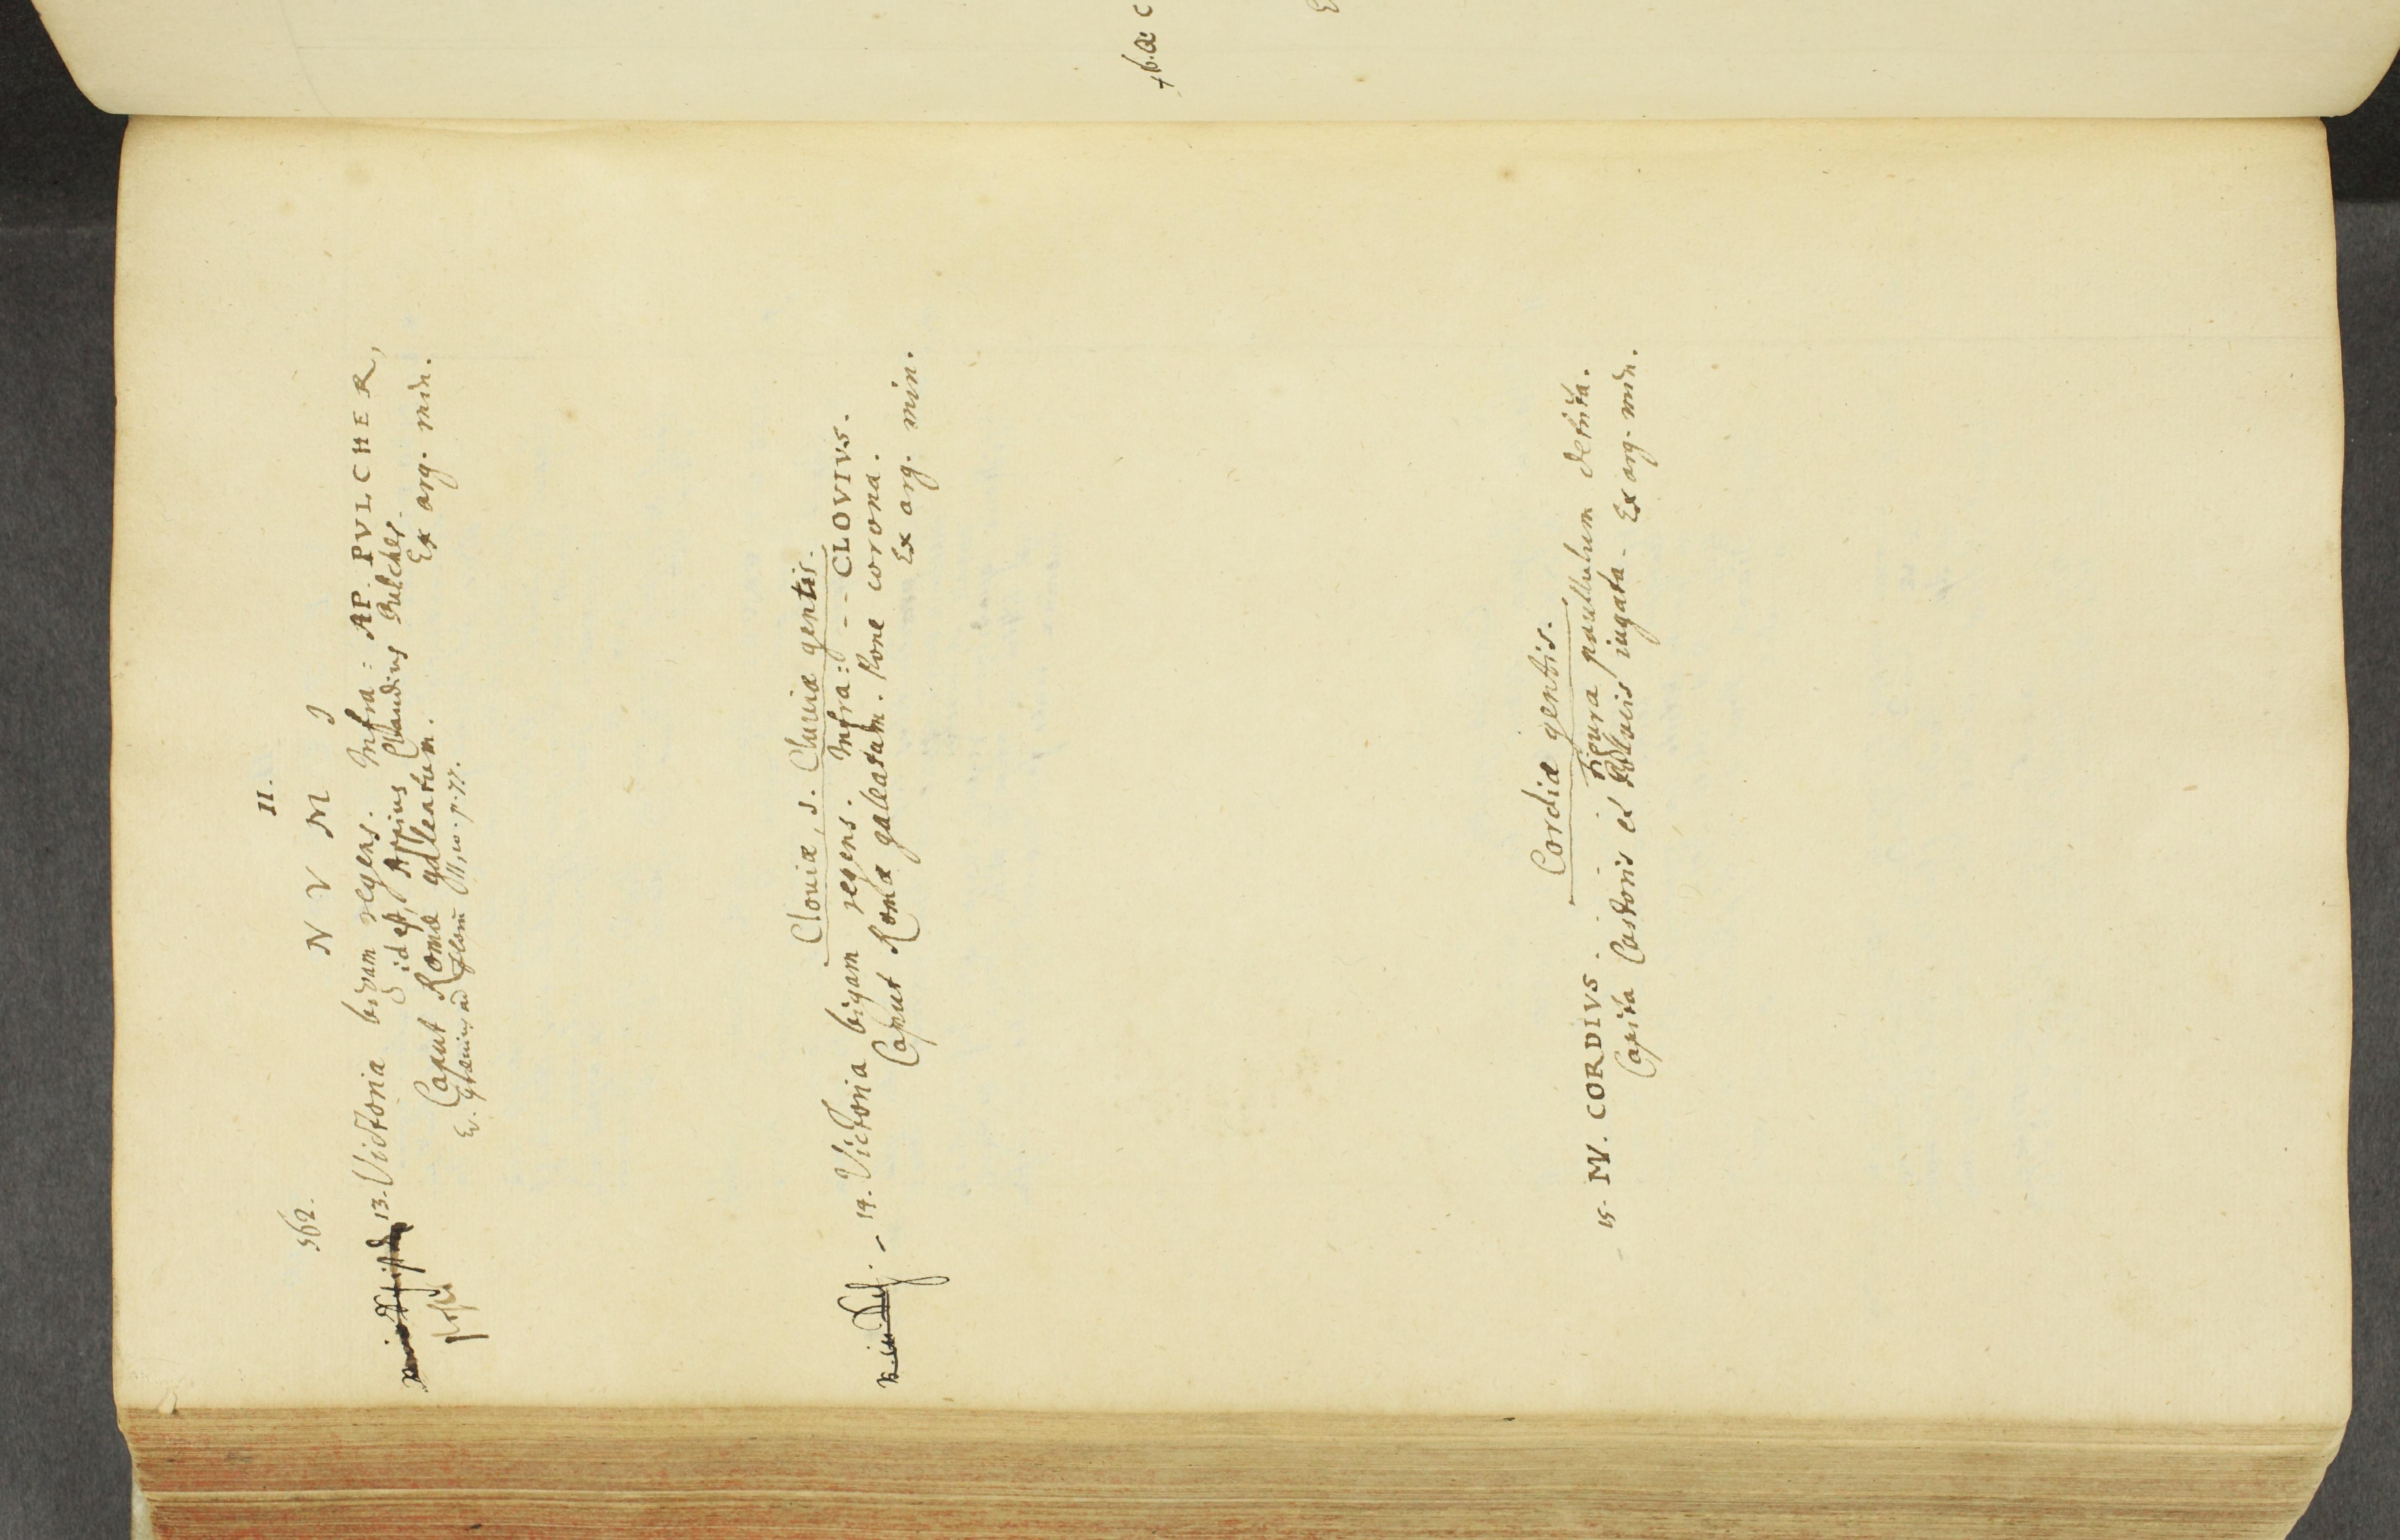 II.
562.
N V M I
13. Victoria bigam regens. Infra: AP. PVLCHER,
id est, Appius Claudius Pulcher.
Caput Romæ galleatum. Ex arg. min.
Ev. ad p. 77.
Clouiæ, s. Cluuiæ gentis.
14. Victoria bigam regens. Infra: - - - CLOVIVS.
Caput Romæ galeatum. Pone corona.
Ex arg. min.
Cordiæ gentis.
15. MV. CORDIVS. - - - Figura paullulum detrita.
Capita Castoris et Pollucis iugata. Ex arg. min.